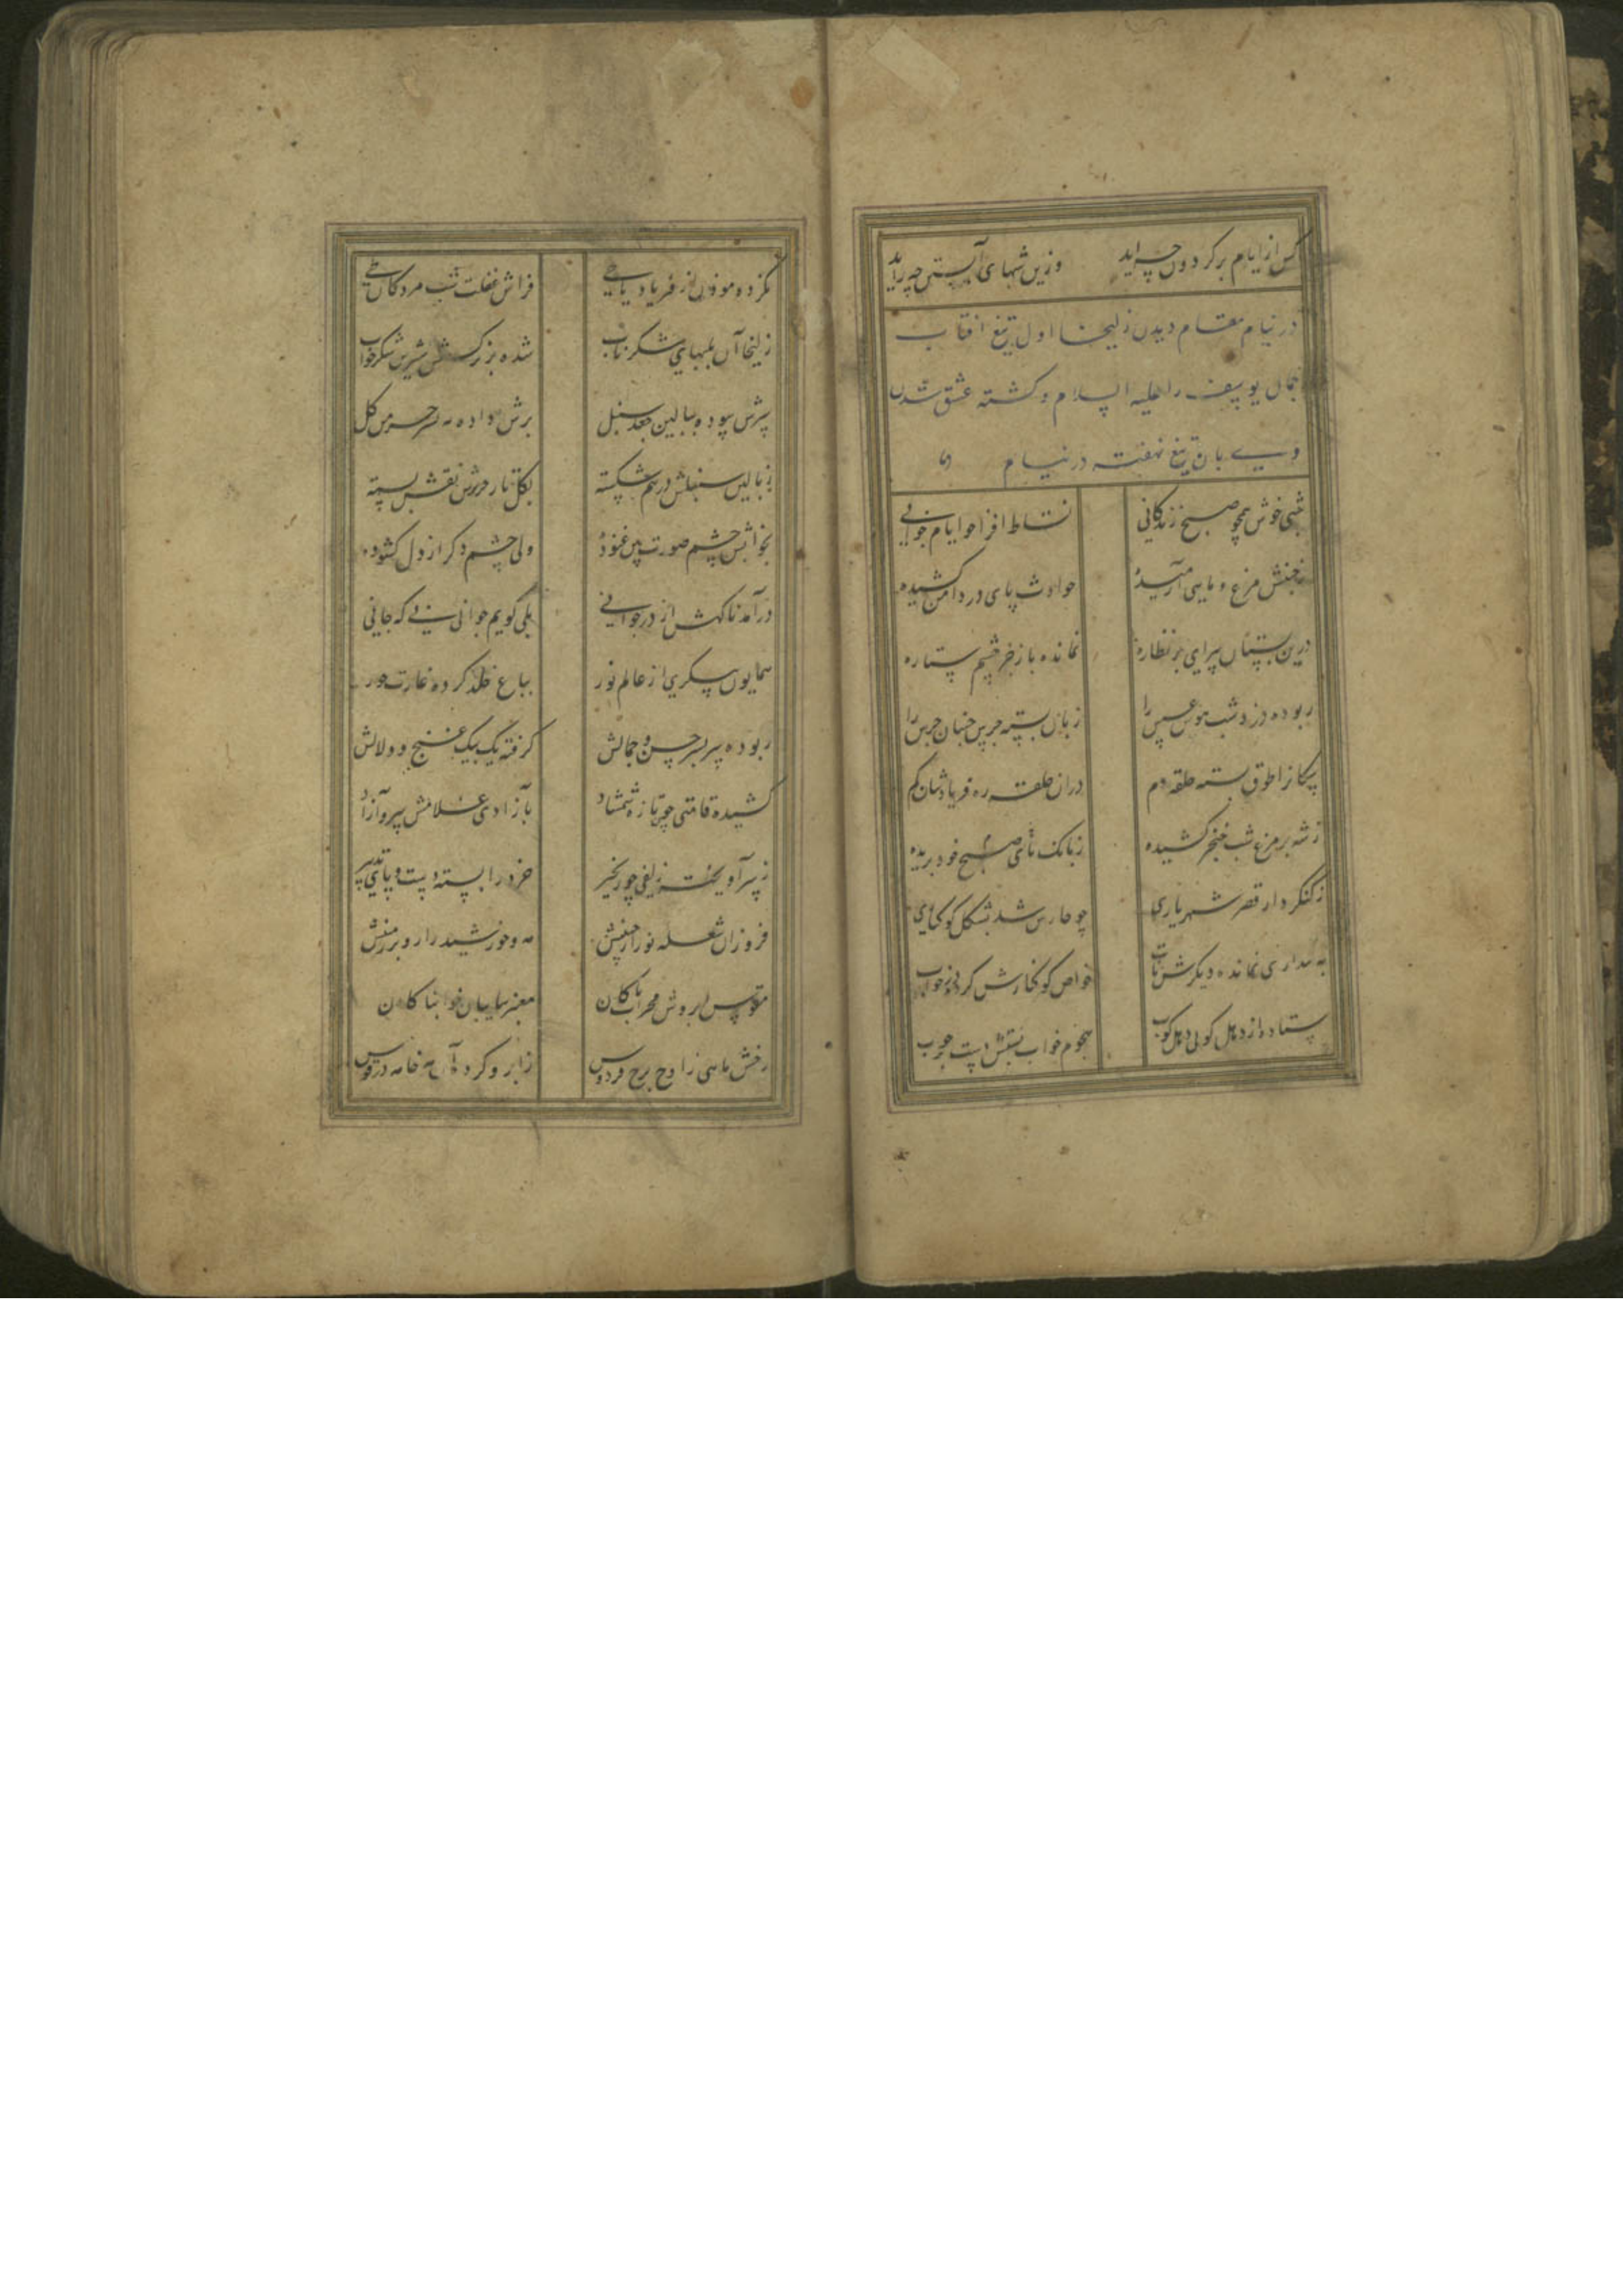 کش از ایام بر کردون چه آید وزین شبهای آبستن چه زاید
در نیام مقام دیدن زلیخا اول تیغ افتاب
جمال یوسف را علیه السلام و کشته عشق شدن
وی بان تیغ نهفته در نیام
شبی خوش همچو صبح زندکانی نشاط افزا چو ایام جوانی
ز جنبش مرغ و ماهی آرمیده حوادث پای در دامن کشیده
درین بستان سرای پر نظاره نمانده باز جز چشم ستاره
ربوده دزد شب هوش عسس را زبان بسته جرس جنبان جرس را
سکانرا طوق کشته حلقه دم دران حلقه ره فریادشان کم
ز شهپر مرغ شب خنجر کشیده ز بانک نای صبح خود بریده
ز کنکر دار قصر شهریاری چو حارس شد بشکل کوکناری
به بیداری نمانده دیکرش تاب خواص کوکنارش کرده در خواب
ستاده از دهل کوبی دهل کوب هجوم خواب بستش دست بر چوب
نکرده موذن از فریاد یا حی فراش غفلت شب مردکان طی
زلیخا آن بلبهای شکر ناب شده بر نرکسش شیرین شکر خواب
سرش سوده ببالین جعد سنبل برش داده به بستر خرمن کل
ز بالین سنبلش درهم شکسته بکل تار حریرش نقش بسته
بخوابش چشم صورت بین غنوده ولی چشم دکر از دل کشوده
در آمد ناکهش از در جوانی بلی کویم جوانی نی که جانی
همایون پیکری از عالم نور بباغ خلد کرده غارت حور
ربوده سر بسر حسن و جمالش کرفته یک بیک غنج و دلالش
کشیده قامتی چون تازه شمشاد بازادی غلامش سرو آزاد
ز سر آویخته زلفی چو زنجیر خرد را بسته دست و پای تدبیر
فروزان شعله نور از جبینش مه و خورشید را رو بر زمینش
مقوس ابروش محراب پاکان معنبر سایبان خوابناکان
رخش ماهی ز اوج برج فردوس ز ابرو کرده آن مه خانه در قوس